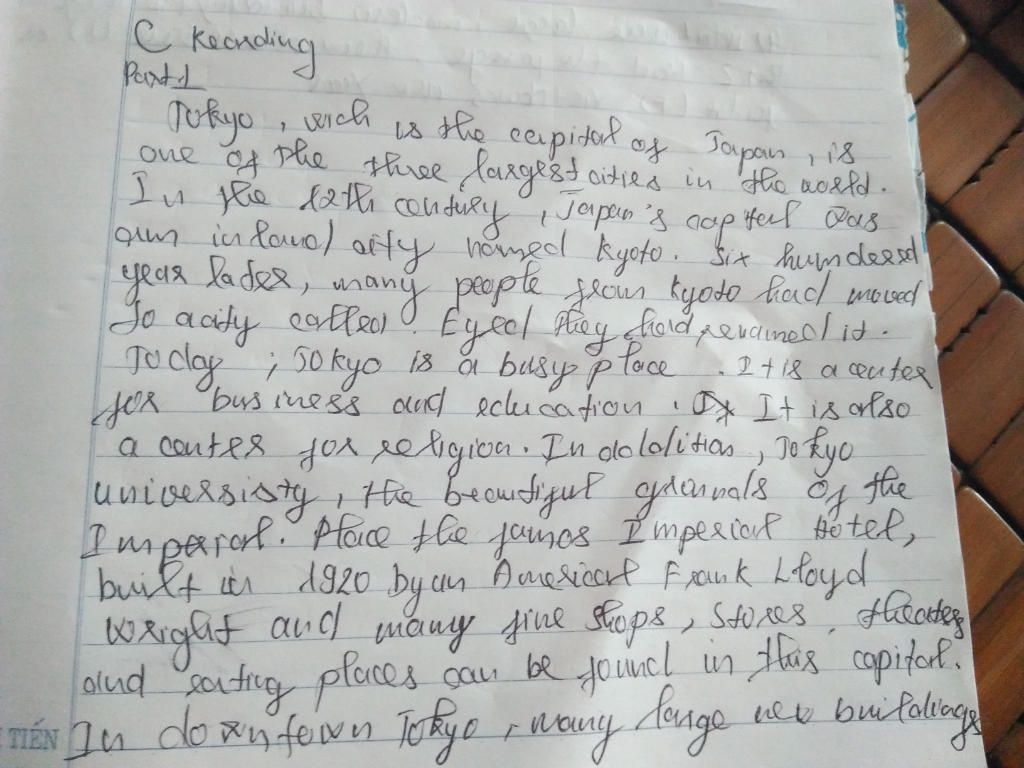 C Reanding
Part 1
Tokyo, wich is the capital of Japan, is
one of the three largest cities in the world.
In the 12th century, Japan's capital was
aun inland city named Kyoto. Six hundered
year later, many people from Kyoto had moved
To a city called. Eyed they had renamed it.
Today ; Tokyo is a busy place. It is a center
for business and education. It is also
a center for religion. In addition, Tokyo
universisty, the beautiful grounds of the
Imperial. Place the famos Imperial Hotel,
built in 1920 by an American Frank Lloyd
Wright and many fine shops, stores, theaters
and eating places can be found in this capital.
In downtown Tokyo, many large new buildings
TIẾN